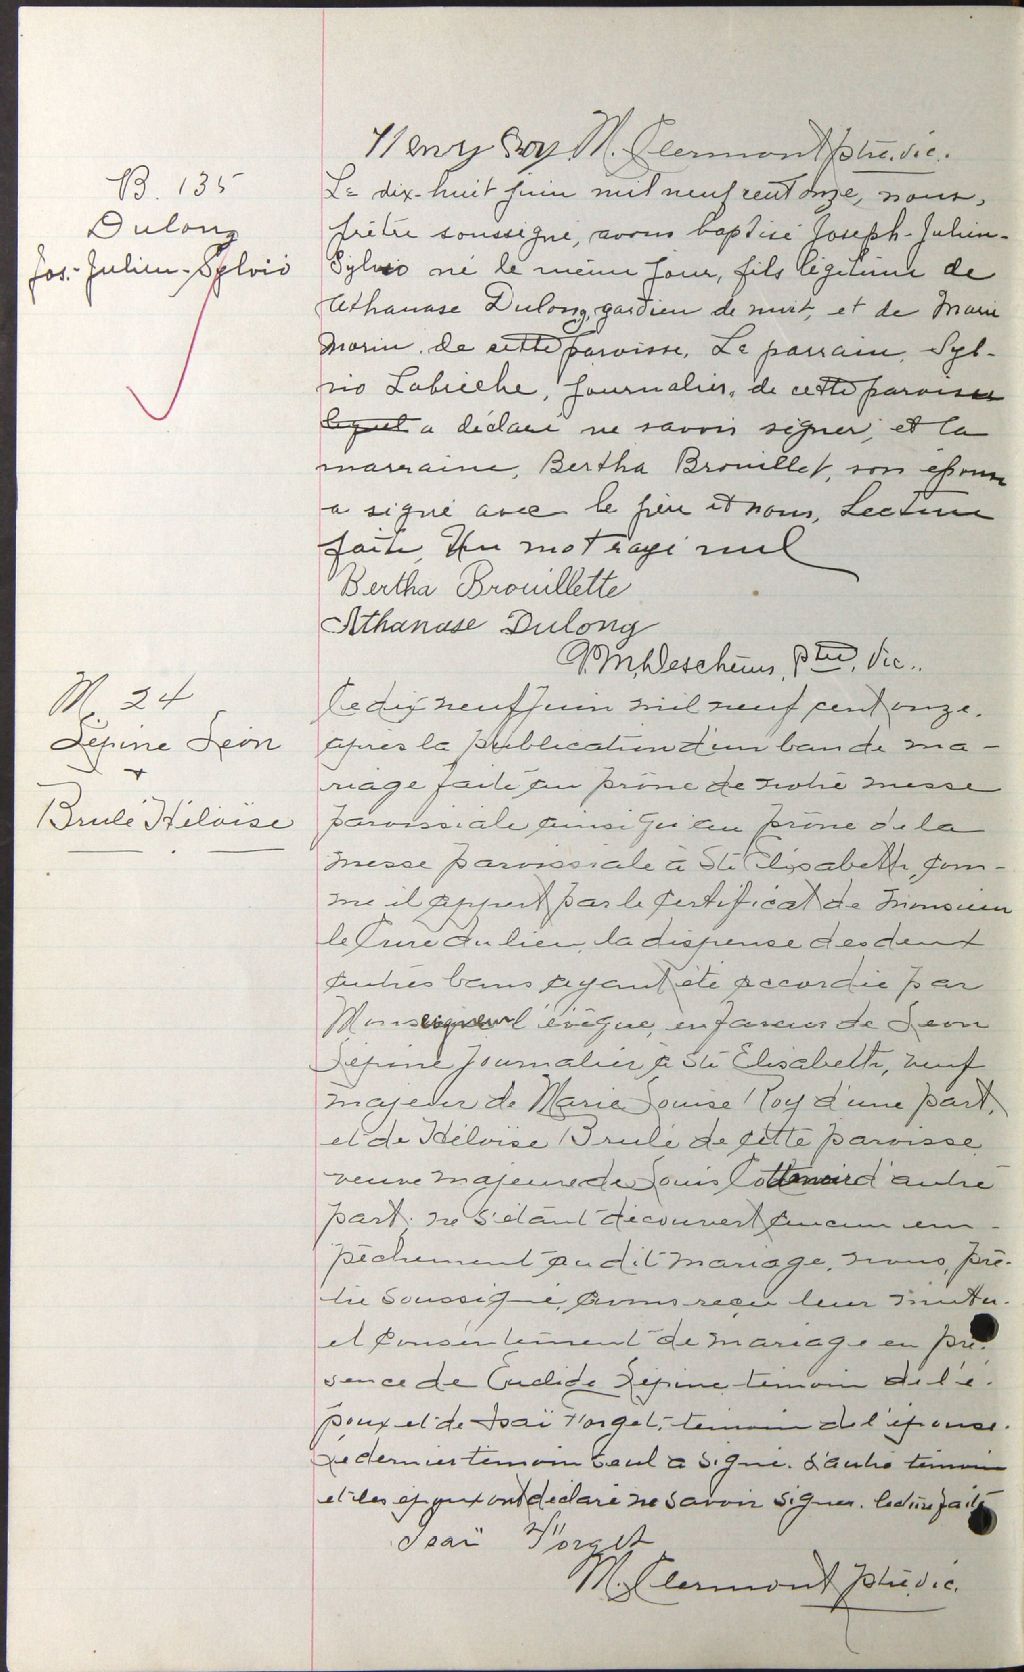 Henry Roy M. Clermont ptre. vic.
B. 135
Dulong
Jos.-Julien-Sylvio
Le dix-huit juin mil neuf cent onze, nous,
prêtre soussigné, avons baptisé Joseph-Julien-
Sylvio né le même jour, fils légitime de
Athanase Dulong, gardien de nuit, et de Marie
Morin de cette paroisse. Le parrain, Syl-
vio Labrèche, journalier, de cette paroisse
lequel a déclaré ne savoir signer, et la
marraine, Bertha Brouillet, son épouse
a signé avec le père et nous, Lecture
faite, Un mot rayé nul
Bertha Brouillette
Athanase Dulong
Deschênes, ptre, vic..
M 24
Lépine Léon
+
Brulé Héloïse
Le dix neuf juin mil neuf cent onze.
après la publication d'un ban de ma-
riage faite au prône de notre messe
paroissiale ainsi qu'au prône de la
messe paroissiale à Ste Elisabeth, com-
me il appert par le certificat de Monsieur
le Curé du lieu, la dispense des deux
autres bans ayant été accordée par
Monseigneur l'évêque, en faveur de Léon
Lépine journalier à Ste Elisabeth, veuf
majeur de Marie Louise Roy d'une part,
et de Héloïse Brulé de cette paroisse
veuve majeure de Louis Cottenoir d'autre
part; ne s'étant découvert aucun em-
pêchement au dit mariage, nous, prê-
tre soussigné, avons reçu leur mutu-
el consentement de mariage en pré-
sence de Euclide Lépine témoin de l'é-
poux et de Isaï Forget, témoin de l'épouse.
Le dernier témoin seul a signé. L'autre témoin
et les époux ont déclaré ne savoir signer. lecture faite
Isaï Forget
M. Clermont ptre. vic.